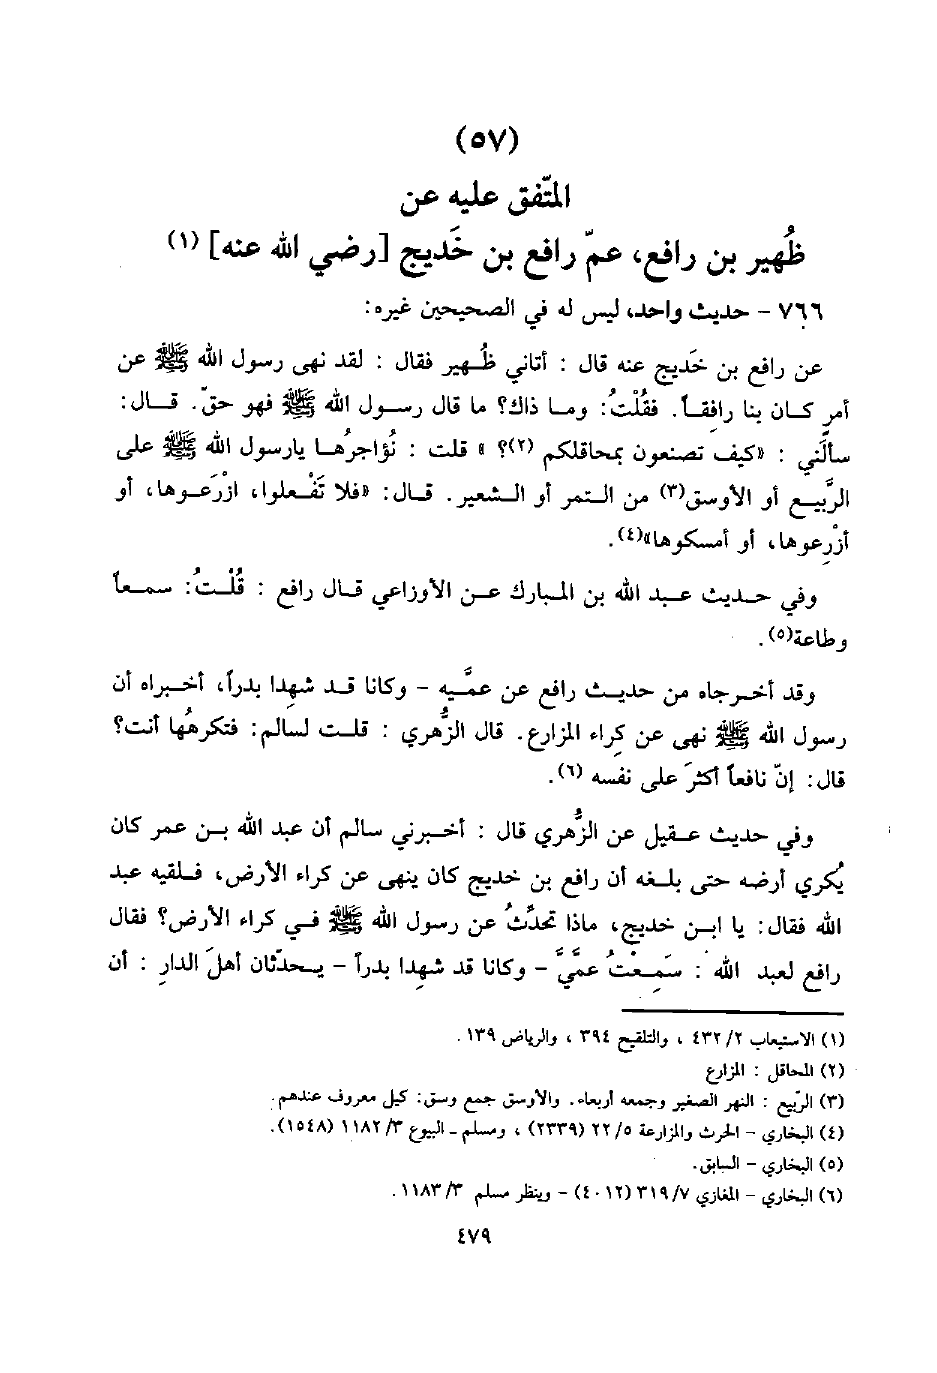 (٥٧)
المتّفق عليه عن
ظُهير بن رافع، عمّ رافع بن خَديج [رضي الله عنه] (١)
٧٦٦ – حديث واحد، ليس له في الصحيحين غيره:
عن رافع بن خَديج عنه قال : أتاني ظُهير فقال : لقد نهى رسول الله ﷺ عن
أمرٍ كان بنا رافِقاً. فقُلْتُ: وما ذاك؟ ما قال رسول الله ﷺ فهو حقّ. قال:
سألَني : «كيف تصنعون بمحاقلكم (٢)؟ » قلت : نُؤاجرُها يارسول الله ﷺ على
الرَّبيع أو الأوسق(٣) من التمر أو الشعير. قال: «فلا تَفْعلوا، ازْرَعوها، أو
أزْرِعوها، أو أمسكوها»(٤).
وفي حديث عبد الله بن المبارك عن الأوزاعي قال رافع : قُلْتُ: سمعاً
وطاعة(٥).
وقد أخرجاه من حديث رافع عن عمَّيه – وكانا قد شهِدا بدراً، أخبراه أن
رسول الله ﷺ نهى عن كِراء المزارع. قال الزُّهري : قلت لسالم: فتكرهُها أنت؟
قال: إنّ نافعاً أكثرَ على نفسه (٦).
وفي حديث عقيل عن الزُّهري قال : أخبرني سالم أن عبد الله بن عمر كان
يُكري أرضه حتى بلغه أن رافع بن خديج كان ينهى عن كراء الأرض، فلقيه عبد
الله فقال: يا ابن خديج، ماذا تحدَّثُ عن رسول الله ﷺ في كراء الأرض؟ فقال
رافع لعبد الله : سَمِعْتُ عمَّيَّ – وكانا قد شهِدا بدراً – يحدّثان أهلَ الدارِ : أن
(١) الاستيعاب ٢/ ٤٣٢ ، والتلقيح ٣٩٤ ، والرياض ١٣٩ .
(٢) المحاقل : المزارع
(٣) الرّبيع : النهر الصغير وجمعه أربعاء. والأوسق جمع وسق: كيل معروف عندهم.
(٤) البخاري – الحرث والمزارعة ٥/ ٢٢ (٢٣٣٩) ، ومسلم ـ البيوع ٣/ ١١٨٢ (١٥٤٨).
(٥) البخاري – السابق.
(٦) البخاري – المغازي ٧/ ٣١٩ (٤٠١٢) – وينظر مسلم ٣/ ١١٨٣ .
٤٧٩